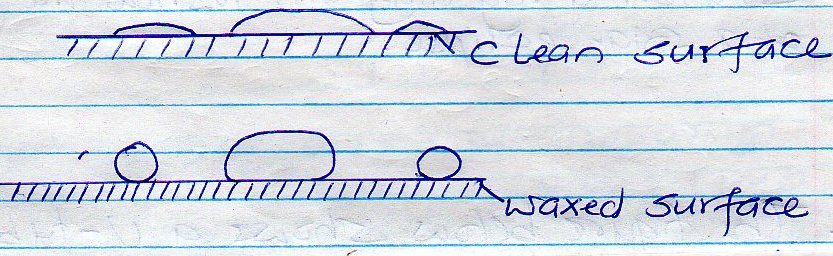 clean surface
waxed surface